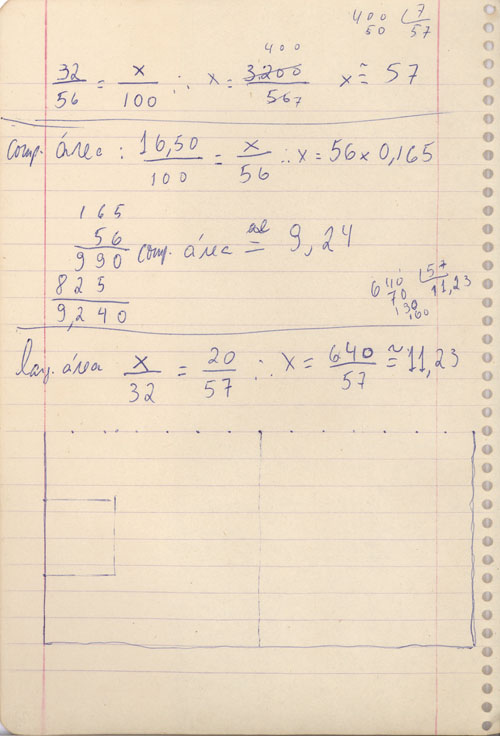 400 7
50 57
400
32/56 = x/100 ∴ x = 3200/567 x ≅ 57
comp. área : 16,50/100 = x/56 ∴ x = 56 x 0,165
165
56
990 comp. área = 9,24
825
9,240
640 57
70 11,23
130
160
larg. área x/32 = 20/57 ∴ x = 640/57 ≅ 11,23